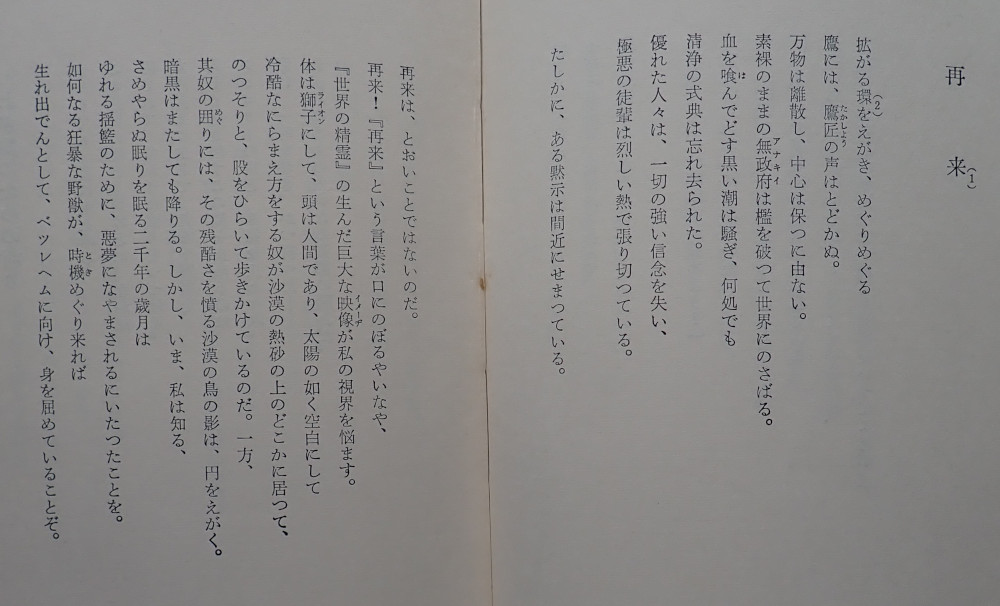 再来(1)
拡がる環(2)をえがき、めぐりめぐる
鷹には、鷹匠(たかしよう)の声はとどかぬ。
万物は離散し、中心は保つに由ない。
素裸のままの無政府(アナキイ)は檻を破つて世界にのさばる。
血を喰(は)んでどす黒い潮は騒ぎ、何処でも
清浄の式典は忘れ去られた。
優れた人々は、一切の強い信念を失い、
極悪の徒輩は烈しい熱で張り切つている。
たしかに、ある黙示は間近にせまつている。
再来は、とおいことではないのだ。
再来！『再来』という言葉が口にのぼるやいなや、
『世界の精霊』の生んだ巨大な映像(イメーヂ)が私の視界を悩ます。
体は獅子(ライオン)にして、頭は人間であり、太陽の如く空白にして
冷酷なにらまえ方をする奴が沙漠の熱砂の上のどこかに居つて、
のつそりと、股をひらいて歩きかけているのだ。一方、
其奴の囲(めぐ)りには、その残酷さを憤る沙漠の鳥の影は、円をえがく。
暗黒はまたしても降りる。しかし、いま、私は知る、
さめやらぬ眠りを眠る二千年の歳月は
ゆれる揺籃のために、悪夢になやまされるにいたつたことを。
如何なる狂暴な野獣が、時機(とき)めぐり来れば
生れ出でんとして、ベツレヘムに向け、身を屈めていることぞ。